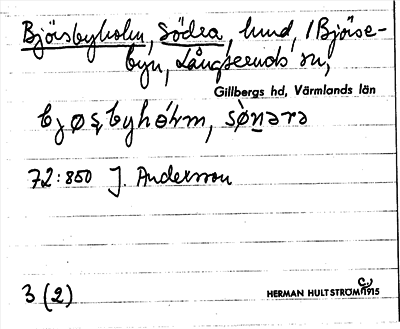 Björsbyholm, Södra, hmd, i Björse-
byn, Långseruds sn,
Gillbergs hd, Värmlands län
72:850 J. Andersson
3 (2)
HERMAN HULTSTRÖM 1915